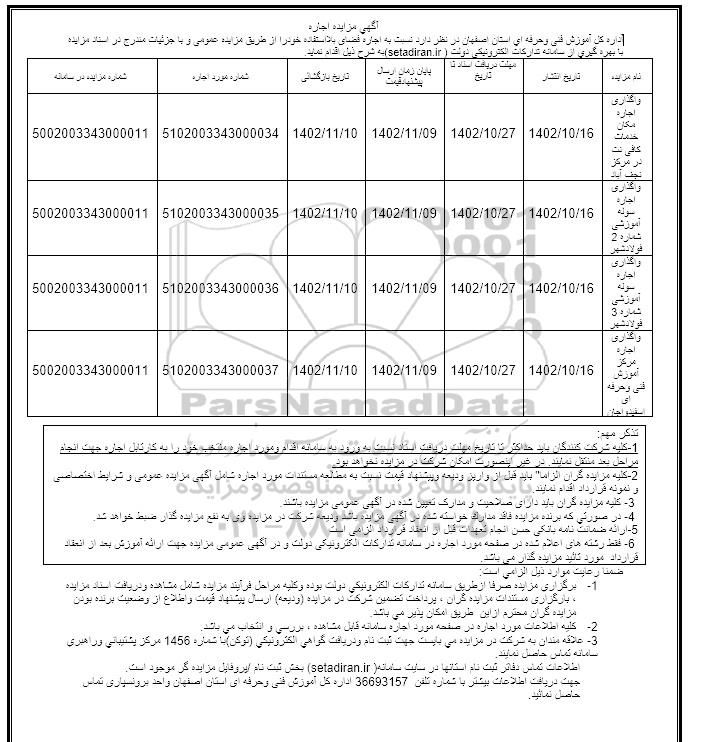 آگهي مزایده اجاره
اداره کل آموزش فنی وحرفه اي استان اصفهان در نظر دارد نسبت به اجاره فضای بلااستفاده خودرا از طریق مزایده عمومی و با جزئیات مندرج در اسناد مزایده
با بهره گیري از سامانه تدارکات الکترونیکی دولت ( setadiran.ir)به شرح ذیل اقدام نماید.
نام مزایده | تاریخ انتشار | مهلت دریافت اسناد تا تاریخ | پایان زمان ارسال پیشنهادقیمت | تاریخ بازگشائی | شماره مورد اجاره | شماره مزایده در سامانه
واگذاری اجاره مکان خدمات کافی نت در مرکز نجف آباد | 1402/10/16 | 1402/10/27 | 1402/11/09 | 1402/11/10 | 5102003343000034 | 5002003343000011
واگذاری اجاره سوله آموزشی شماره 2 فولادشهر | 1402/10/16 | 1402/10/27 | 1402/11/09 | 1402/11/10 | 5102003343000035 | 5002003343000011
واگذاری اجاره سوله آموزشی شماره 3 فولادشهر | 1402/10/16 | 1402/10/27 | 1402/11/09 | 1402/11/10 | 5102003343000036 | 5002003343000011
واگذاری اجاره مرکز آموزش فنی وحرفه ای اسفیدواجان | 1402/10/16 | 1402/10/27 | 1402/11/09 | 1402/11/10 | 5102003343000037 | 5002003343000011
ParsNamadData
تذکر مهم:
1-کلیه شرکت کنندگان باید حداکثر تا تاریخ مهلت دریافت اسناد نسبت به ورود به سامانه اقدام ومورد اجاره منتخب خود را به کارتابل اجاره جهت انجام
مراحل بعد منتقل نمایند. در غیر اینصورت امکان شرکت در مزایده نخواهد بود.
2-کلیه مزایده گران الزاما" باید قبل از واریز ودیعه وپیشنهاد قیمت نسبت به مطالعه مستندات مورد اجاره شامل آگهی مزایده عمومی و شرایط اختصاصی
و نمونه قرارداد اقدام نمایند.
3- کلیه مزایده گران باید دارای صلاحیت و مدارک تعیین شده در آگهی عمومی مزایده باشند.
4- در صورتی که برنده مزایده فاقد مدارک خواسته شده در آگهی مزایده باشد ودیعه شرکت در مزایده وی به نفع مزایده گذار ضبط خواهد شد.
5-ارائه ضمانت نامه بانکی حسن انجام تعهدات قبل از انعقاد قرارداد الزامی است.
6- فقط رشته های اعلام شده در صفحه مورد اجاره در سامانه تدارکات الکترونیکی دولت و در آگهی عمومی مزایده جهت ارائه آموزش بعد از انعقاد
قرارداد مورد تائید مزایده گذار می باشد.
ضمنا رعایت موارد ذیل الزامی است:
1- برگزاری مزایده صرفا ازطریق سامانه تدارکات الکترونیکي دولت بوده وکلیه مراحل فرآیند مزایده شامل مشاهده ودریافت اسناد مزایده
، بارگزاری مستندات مزایده گران ، پرداخت تضمین شرکت در مزایده (ودیعه) ارسال پیشنهاد قیمت واطلاع از وضعیت برنده بودن
مزایده گران محترم ازاین طریق امکان پذیر می باشد.
2- کلیه اطلاعات مورد اجاره در صفحه مورد اجاره سامانه قابل مشاهده ، بررسی و انتخاب می باشد.
3- علاقه مندان به شرکت در مزایده مي بایست جهت ثبت نام ودریافت گواهي الکترونیکي (توکن)با شماره 1456 مرکز پشتیباني وراهبري
سامانه تماس حاصل نمایند.
اطلاعات تماس دفاتر ثبت نام استانها در سایت سامانه( setadiran.ir) بخش ثبت نام /پروفایل مزایده گر موجود است.
جهت دریافت اطلاعات بیشتر با شماره تلفن 36693157 اداره کل آموزش فنی وحرفه ای استان اصفهان واحد برونسپاری تماس
حاصل نمائید.